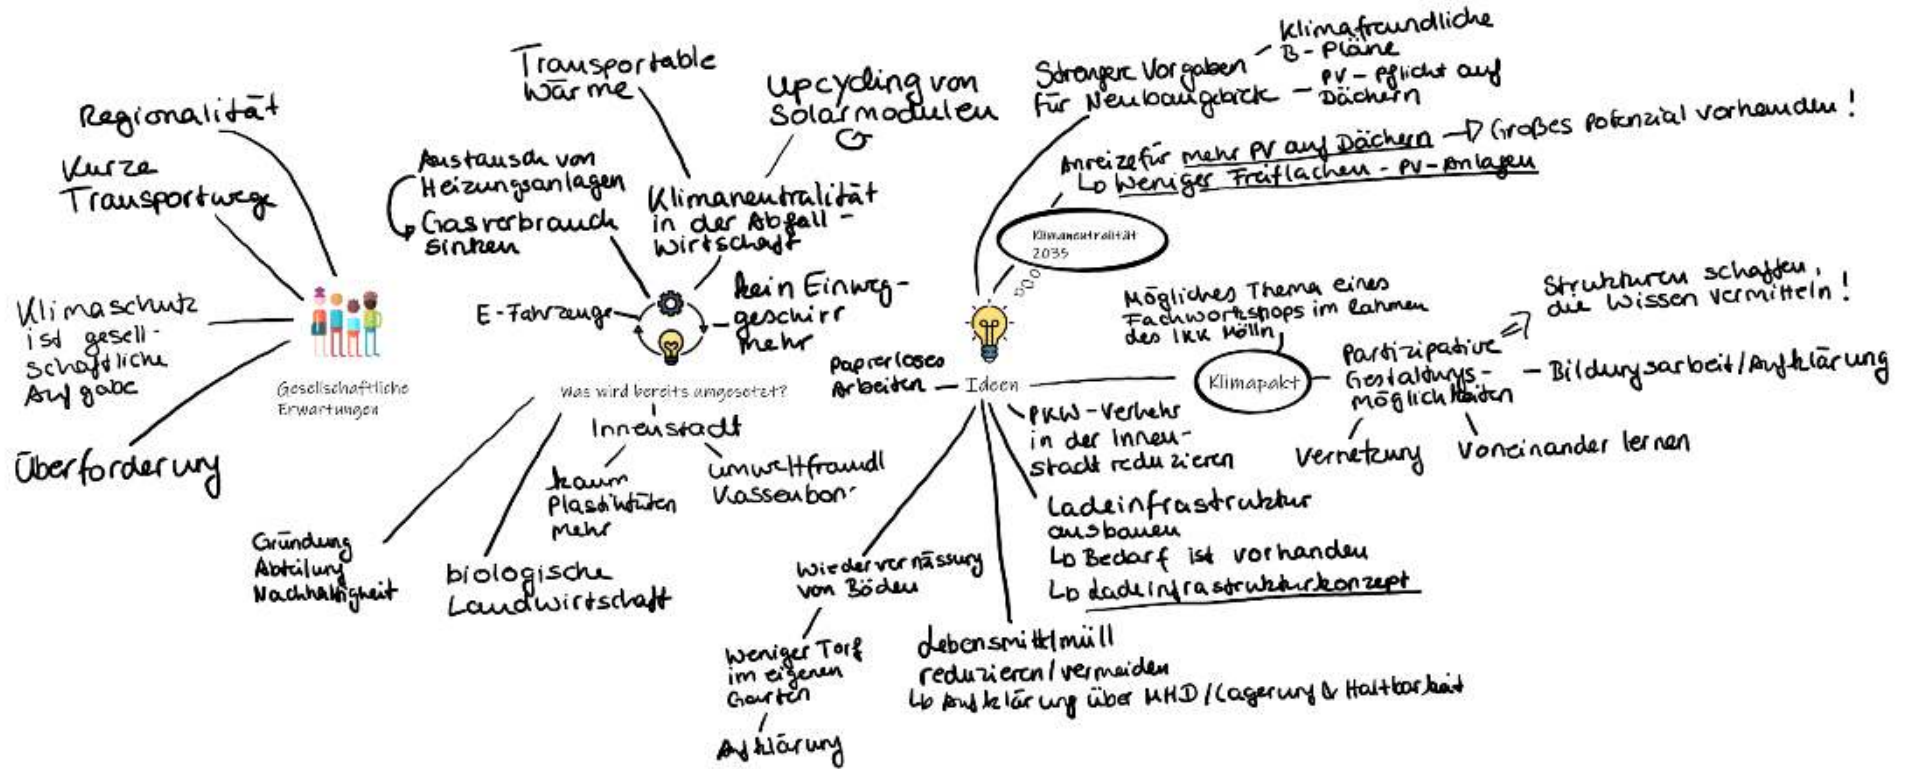 Regionalität
Kurze
Transportwege
Klimaschutz
ist gesell-
schaftliche
Aufgabe
Überforderung
Gesellschaftliche
Erwartungen
Transportable
Wärme
Upcycling von
Solarmodulen
Austausch von
Heizungsanlagen
Gasverbrauch
sinken
Klimaneutralität
in der Abfall-
wirtschaft
E-Fahrzeuge
kein Einweg-
geschirr
mehr
Was wird bereits umgesetzt?
Innenstadt
kaum
Plastiktüten
mehr
umweltfreundl
Kassenbon
Gründung
Abteilung
Nachhaltigkeit
biologische
Landwirtschaft
Strengere Vorgaben
für Neubaugebiete
Klimafreundliche
B-Pläne
PV-Pflicht auf
Dächern
Anreize für mehr PV auf Dächern → Großes Potenzial vorhanden!
Weniger Freiflächen-PV-Anlagen
Klimaneutralität
2035
Ideen
Papierloses
Arbeiten
Mögliches Thema eines
Fachworkshops im Rahmen
des IKK Mölln
Klimapakt
Partizipative
Gestaltungs-
möglichkeiten
Strukturen schaffen,
die Wissen vermitteln!
Bildungsarbeit/Aufklärung
Vernetzung
Voneinander lernen
PKW-Verkehr
in der Innen-
stadt reduzieren
Ladeinfrastruktur
ausbauen
Bedarf ist vorhanden
Ladeinfrastrukturkonzept
Wiedervernässung
von Böden
Weniger Torf
im eigenen
Garten
Aufklärung
Lebensmittelmüll
reduzieren/vermeiden
Aufklärung über MHD/Lagerung & Haltbarkeit